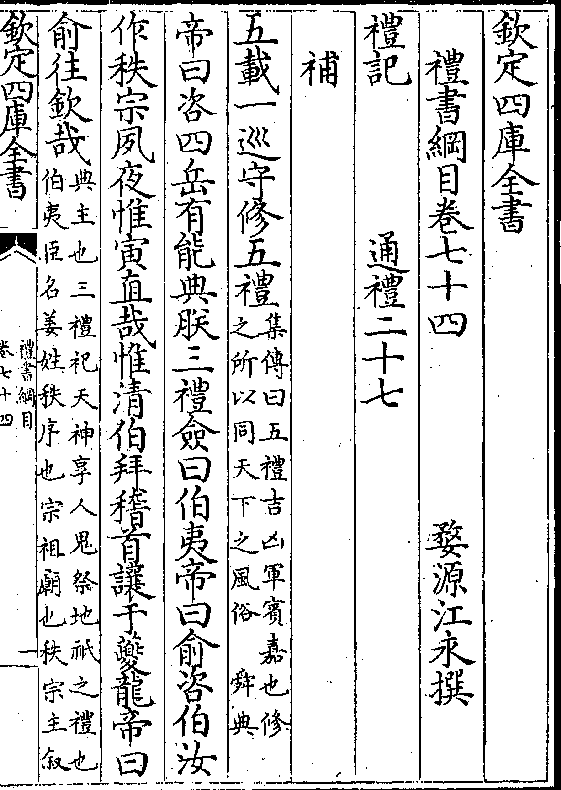 欽定四庫全書
禮書綱目卷七十四 婺源江永撰
禮記 通禮二十七
補
五載一巡守修五禮集傳曰五禮吉凶軍賓嘉也修
之所以同天下之風俗 舜典
帝曰咨四岳有能典朕三禮僉曰伯夷帝曰俞咨伯汝
作秩宗夙夜惟寅直哉惟清伯拜稽首讓于夔龍帝曰
俞往欽哉典主也三禮祀天神享人鬼祭地祇之禮也
伯夷臣名姜姓秩序也宗祖廟也秩宗主叙
欽定四庫全書
禮書綱目
卷七十四
一